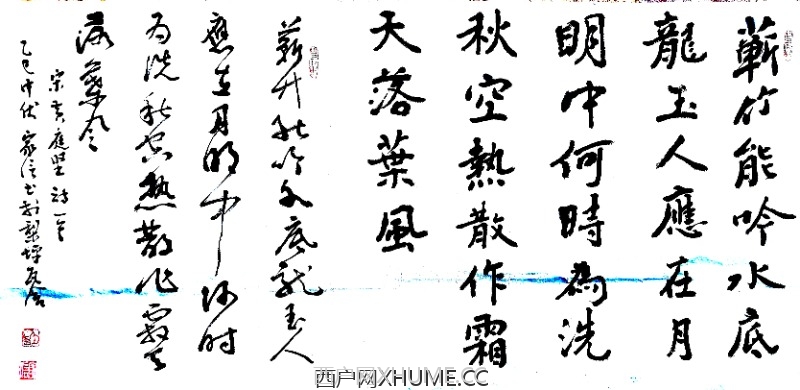 蘄竹能吟水底
龍玉人應在月
明中何時為洗
秋空熱散作霜
天落葉風
蘄竹能吟水底龍玉人
應在月明中何時
為洗秋空熱散作霜天
落葉風
宋黃庭堅詩一首
乙巳中伏
西户网XHUME.CC